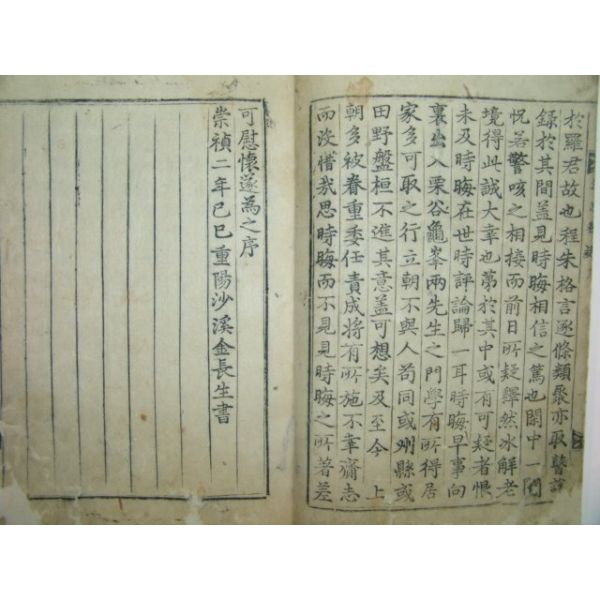 於羅君故也程朱格言逐條類聚亦取瞽說
錄於其間盖見時晦相信之篤也閑中一
怳若謦咳之相接而前日所疑釋然冰解老
境得此誠大幸也第於其中或有可疑者恨
未及時晦在世時評論歸一耳時晦早事向
裏出入栗谷龜峯兩先生之門學有所得居
家多可取之行立朝不與人苟同或州縣或
田野盤桓不進其意盖可想矣及至今 上
朝多被眷重委任責成將有所施不幸齎志
而沒惜哉思時晦而不見見時晦之所著差
可慰懷遂為之序
崇禎二年己巳重陽沙溪金長生書